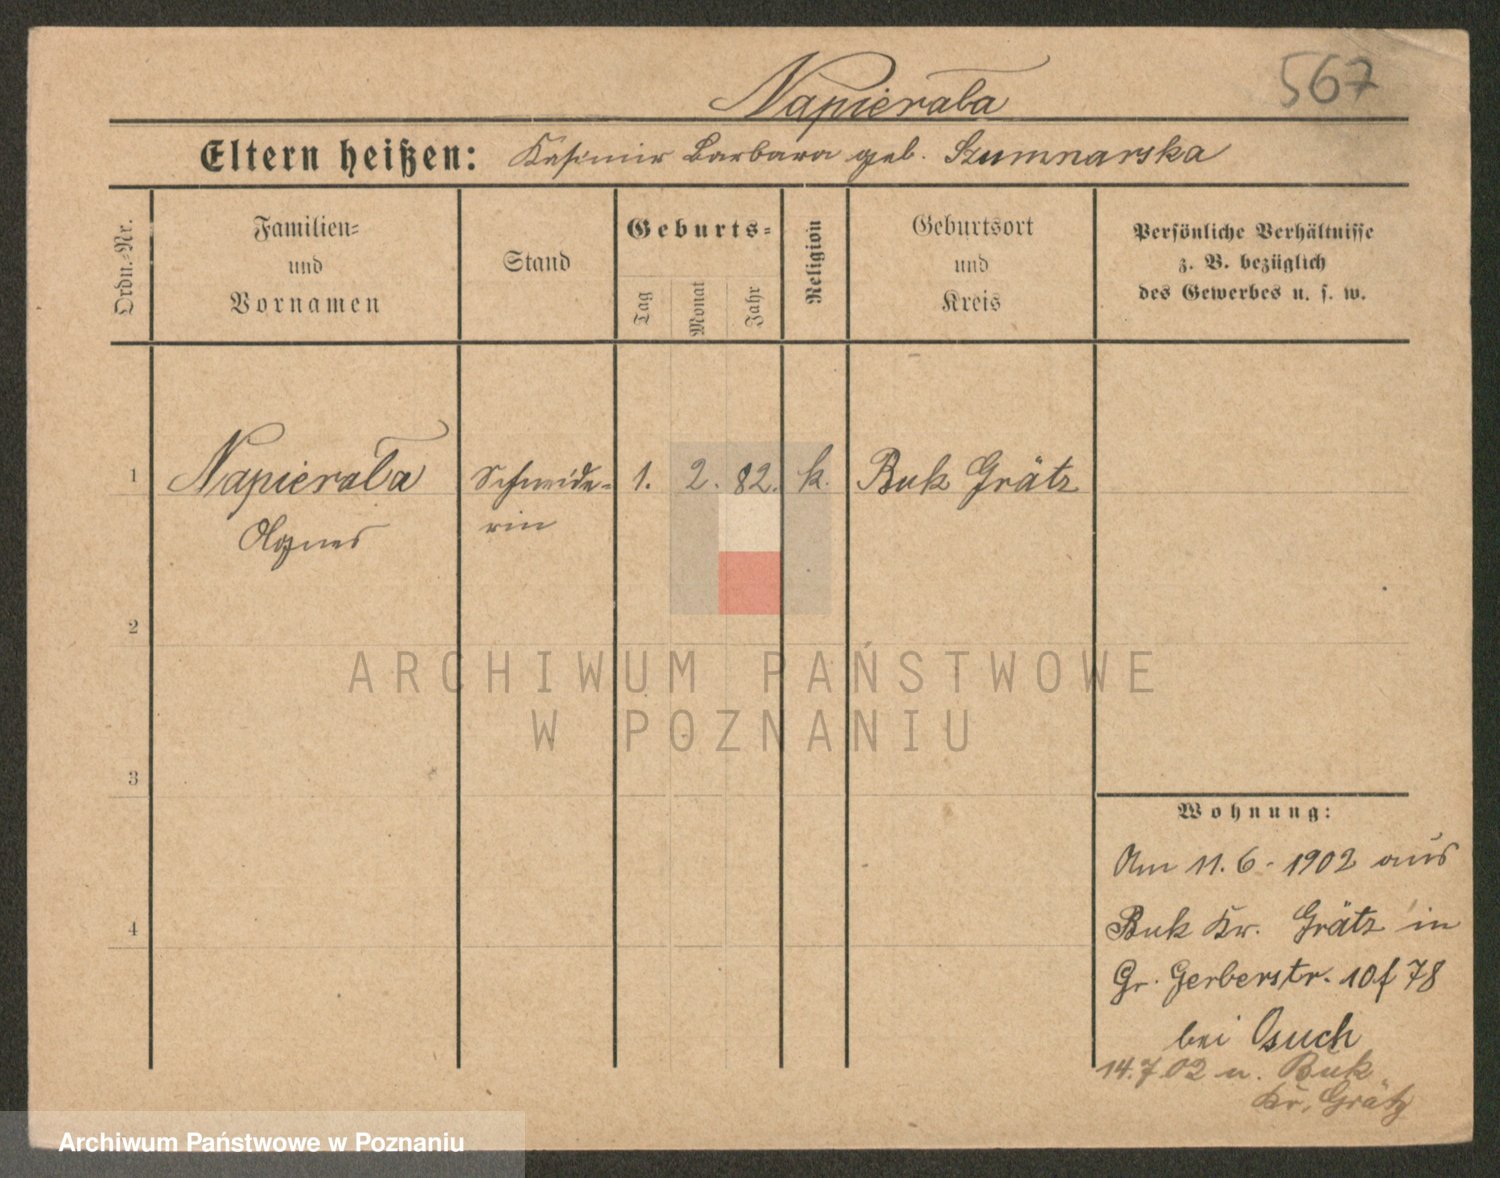 Napierała
567
Eltern heißen: Kasimir Barbara geb. Szumnarska
Ordn.-Nr.
Familien-
und
Vornamen
Stand
Geburts-
Tag
Monat
Jahr
Religion
Geburtsort
und
Kreis
Persönliche Verhältnisse
z. B. bezüglich
des Gewerbes u. s. w.
1 Napierała Schneide- 1. 2. 82. k. Buk Grätz
Agnes rin
2
ARCHIWUM PAŃSTWOWE
W POZNANIU
3
4
Wohnung:
Am 11. 6. 1902 aus
Buk Kr. Grätz in
Gr. Gerberstr. 10f 78
bei Osuch
14.7.02 n. Buk
Kr. Grätz
Archiwum Państwowe w Poznaniu